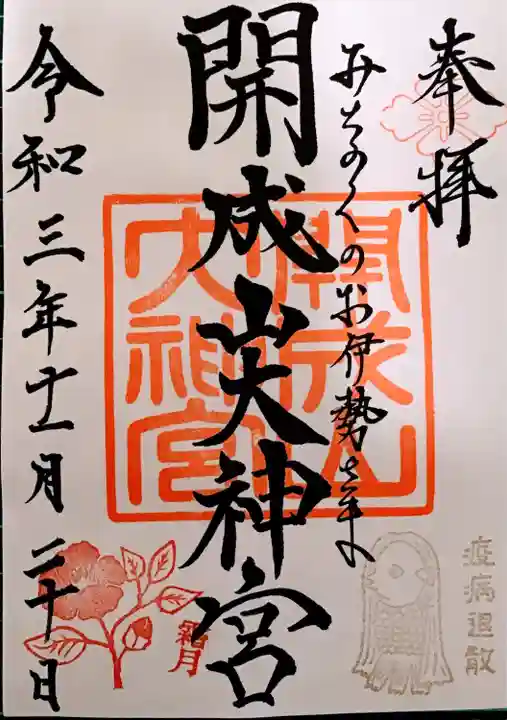 奉拝
みちのくのお伊勢さま
開成山大神宮
開成山大神宮
令和三年十一月二十日
霜月
疫病退散